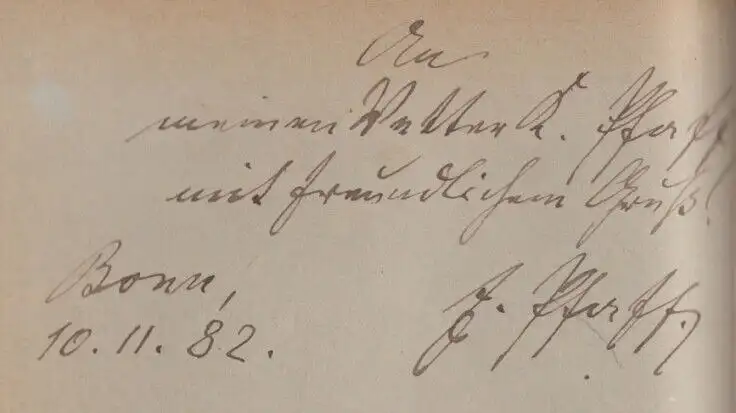 An
meinen Vetter K. Pfaff
mit freundlichem Gruß!
Bonn,
10.11.82.
F. Pfaff.